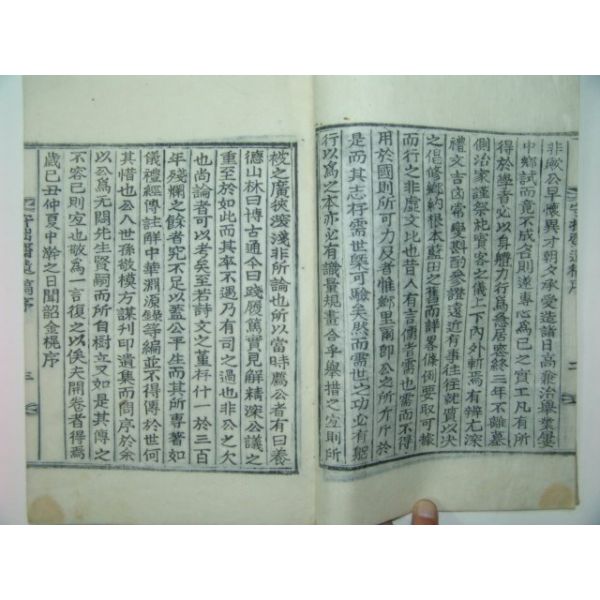 非歟公早懷異才朝夕承愛造諸日高兼治擧業屢
中鄕試而竟不成名則遂專心爲己之實工凡有所
得於學者必以身軆力行爲急居密終三年不離墓
側治家謹祭祀賓客之儀上下內外斬焉有辨尤深
禮文吉凶常變斟酌參證遠近有事往往就質以決
之倡修鄕約根本藍田之舊而詳畧條例要取可據
而行之非虛文比也昔人有言儒者需也需而不得
用於國則所可力及者惟鄕里爾卽公之所斤斤於
是而其志存需世槩可驗矣然而需世之功必有軆
行以爲之本亦必有識量規畫合乎擧措之宜則所
被之廣狹深淺非所論也所以當時薦公者有曰養
德山林曰博古通今曰踐履篤實見解精深公議之
重至於如此而其卒不遇乃有司之過也非公之欠
也尚論者可以考矣至若詩文之菫存什一於三百
年殘爛之餘者究不足以蓋公平生而其所專著如
儀禮經傳註解中華淵源錄等編並不得傳於世何
其惜也公八世孫敬模方謀刊印遺集而徵序於余
以公爲无悶先生賢嗣而所自樹立又如是其傳之
不容已則宜也敬爲一言復之以俟夫開卷者得焉
歲己丑仲夏中澣之日聞韶金梲序